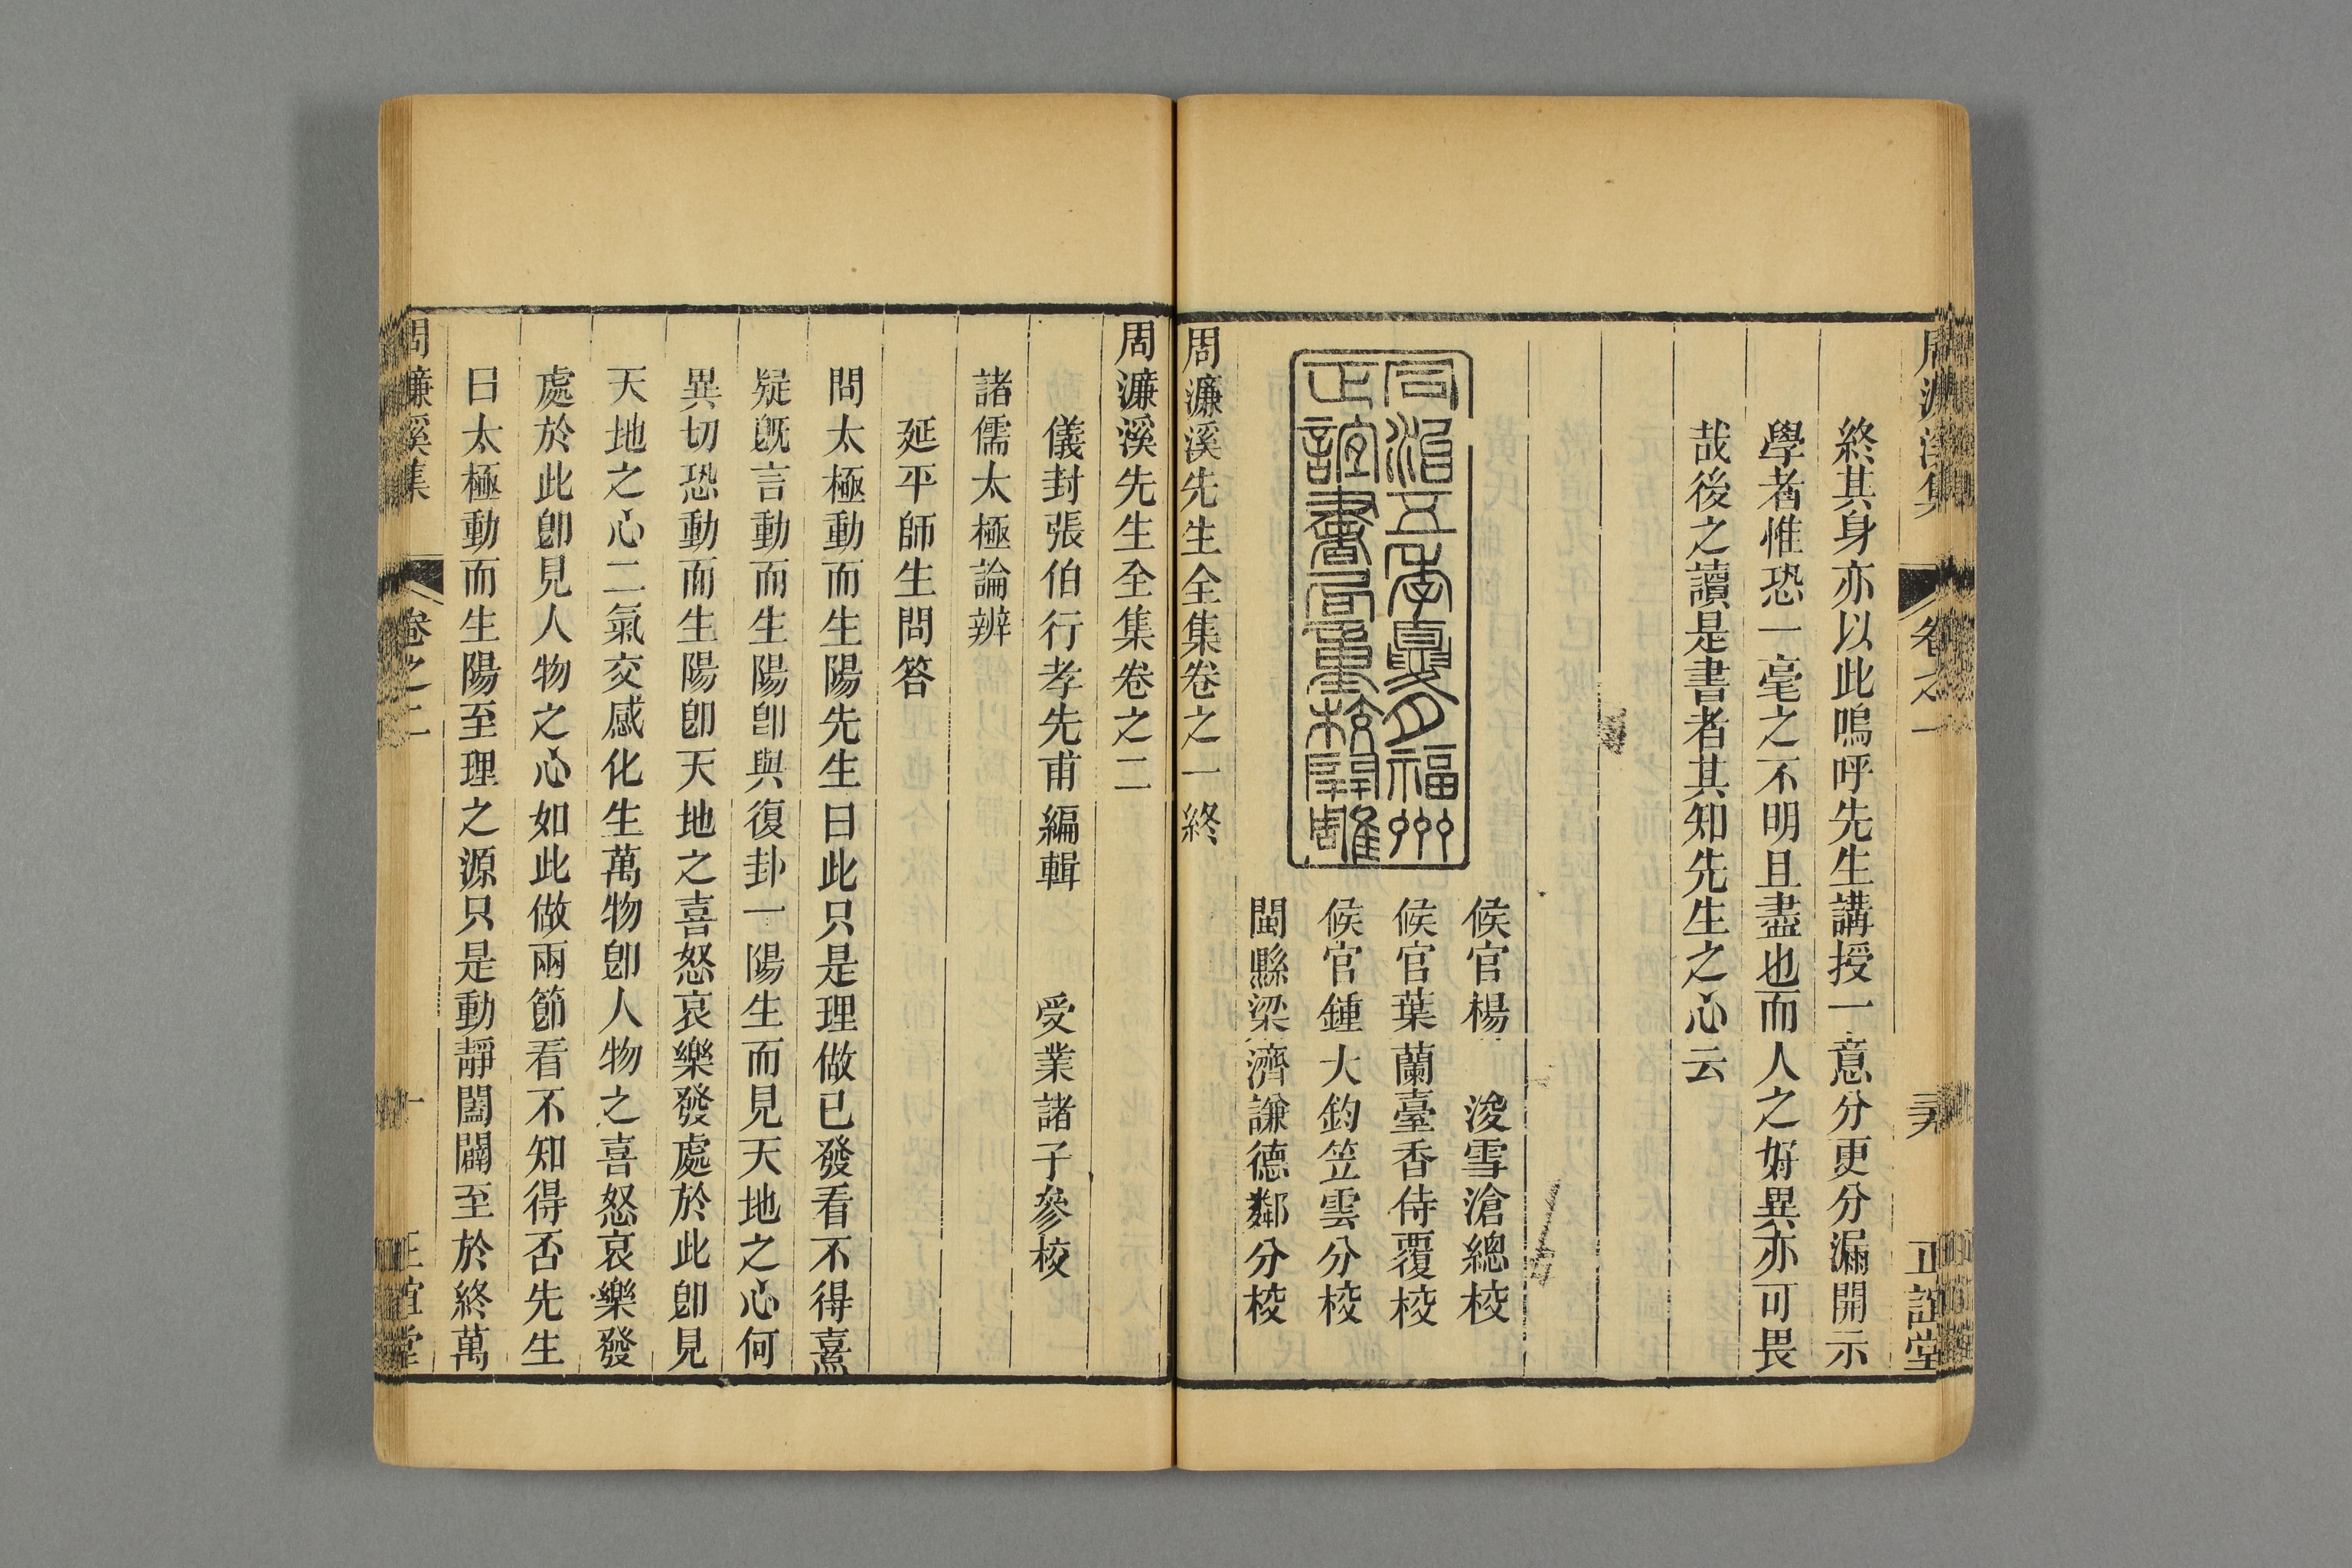 周濂溪集 卷之一 正誼堂
終其身亦以此嗚呼先生講授一意分更分漏開示
學者惟恐一毫之不明且盡也而人之好異亦可畏
哉後之讀是書者其知先生之心云
候官楊 浚雪滄總校
候官葉蘭臺香侍覆校
候官鍾大鈞笠雲分校
閩縣梁濟謙德鄰分校
同治五年夏月福州
正誼書局重校開雕
周濂溪先生全集卷之一終
周濂溪先生全集卷之二
儀封張伯行孝先甫編輯 受業諸子參校
諸儒太極論辨
延平師生問答
問太極動而生陽先生曰此只是理做已發看不得熹
疑旣言動而生陽卽與復卦一陽生而見天地之心何
異切恐動而生陽卽天地之喜怒哀樂發處於此卽見
天地之心二氣交感化生萬物卽人物之喜怒哀樂發
處於此卽見人物之心如此做兩節看不知得否先生
曰太極動而生陽至理之源只是動靜闔闢至於終萬
周濂溪集 卷之二 一 正誼堂